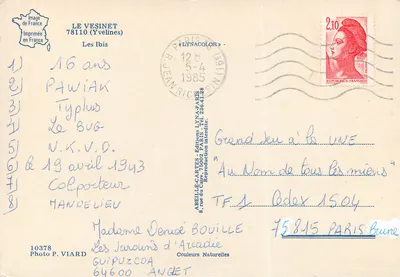 Image de France
Imprimée en France
LE VESINET
78110 (Yvelines)
Les Ibis
"LYNACOLOR"
PARIS
12 H
5-4
1985
2,10
1) 16 ans
2) PAWIAK
3) Typhus
4) Le BUG
5) N.K.V.D.
6) le 19 avril 1943
7) Colporteur
8) MANDELIEU
Madame Denise BOUILLE
Les Jardins d'Arcadie
GUIPUZCOA
64600 ANGET
10378
Photo P. VIARD
Couleurs Naturelles
ABEILLE-CARTES - Editions LYNA-PARIS
8, rue du Caire, 75002 PARIS - Tél. 236-41-28
Reproduction interdite.
Grand jeu à la UNE
"Au Nom de tous les miens"
TF 1 Cedex 1504
75815 PARIS Brune